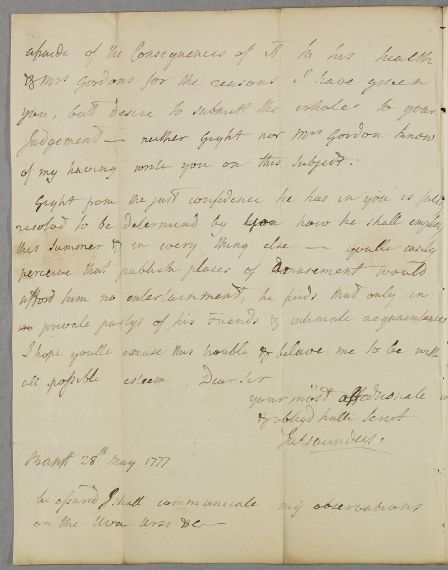 afraide of the Consequences of it to his health
& Mrs Gordons for the reasons I have given
you, but desire to submitt the whole to your
Judgement — neither Gight nor Mrs Gordon know
of my having wrote you on this subject.
Gight from the just confidence he has in you is fully
resolvd to be determind by you how he shall employ
this summer & in every thing else — youlle easily
perceive that publick places of Amusement would
afford him no entertainment, he finds that only in
private partys of his Friends & intimate acquaintances
I hope youlle excuse this trouble & beleive me to be with
all possible esteem Dear Sir
your most affectionate
& obligd humle Servt
Jas Saunders.
Banff 28th May 1777
be assured I shall communicate my observations
on the Uva Ursi &c —